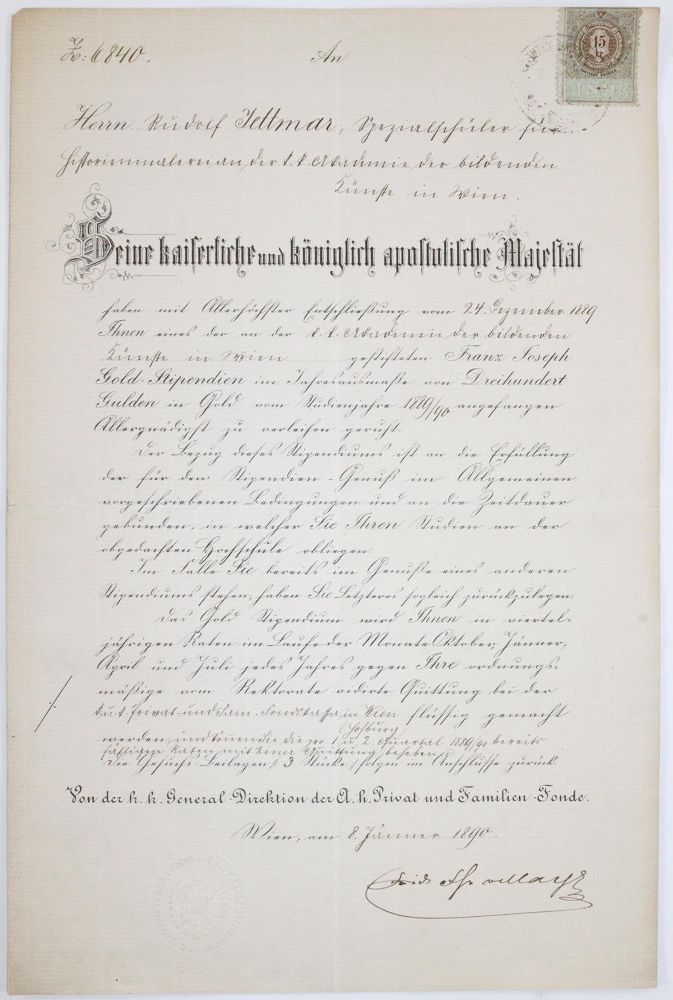 Z: 6840.
An
15
1888
Herrn Rudolf Jettmar, Spezialschüler für
Historienmalerei an der k. k. Akademie der bildenden
Künste in Wien.
Seine kaiserliche und königlich apostolische Majestät
haben mit Allerhöchster Entschließung vom 24. Dezember 1889
Ihnen eines der an der k. k. Akademie der bildenden
Künste in Wien gestifteten Franz Joseph
Gold-Stipendien im Jahresausmaße von Dreihundert
Gulden in Gold vom Studienjahre 1889/90 angefangen
Allergnädigst zu verleihen geruht.
Der Bezug dieses Stipendiums ist an die Erfüllung
der für den Stipendien-Genuß im Allgemeinen
vorgeschriebenen Bedingungen und an die Zeitdauer
gebunden, in welcher Sie Ihren Studien an der
obgedachten Hochschule obliegen.
Im Falle Sie bereits im Genuße eines anderen
Stipendiums stehen, haben Sie Letzteres sogleich zurückzulegen.
Das Gold Stipendium wird Ihnen in viertel-
jährigen Raten im Laufe der Monate Oktober, Jänner,
April und Juli jedes Jahres gegen Ihre ordnungs-
mäßige vom Rektorate vidirte Quittung bei der
k. u. k. Privat- und Fam. Fondskassa in Wien flüssig gemacht
Hofburg
werden, und können Sie die pro 1. u. 2. Quartal 1889/90 bereits
fälligen Raten mit Einer Quittung beheben.
Die Gesuchs-Beilagen 3 Stücke folgen im Anschlusse zurück.
Von der k. k. General-Direktion der A. h. Privat und Familien-Fonde.
Wien, am 8. Jänner 1890.